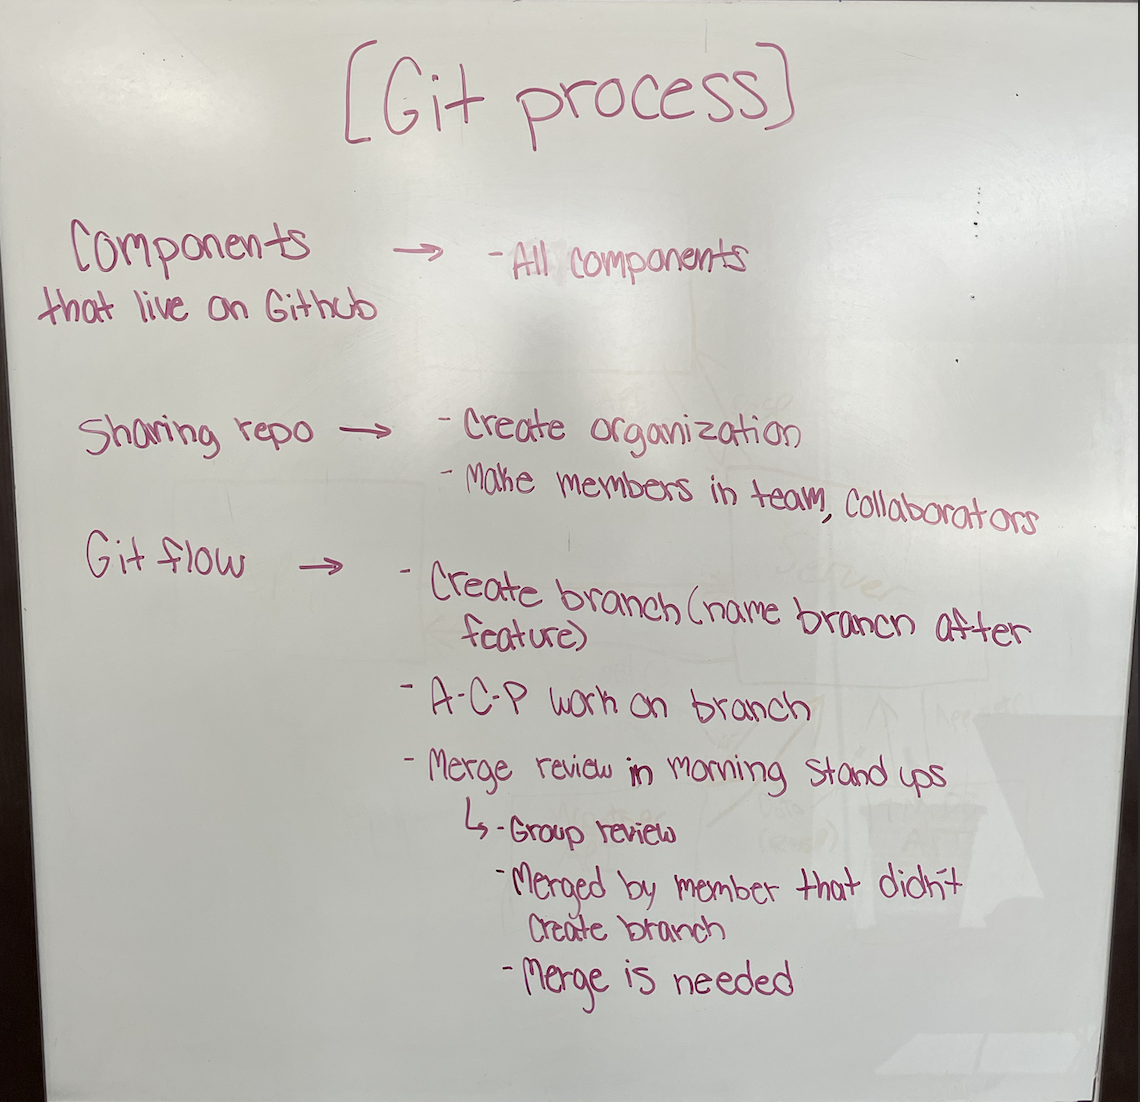 [Git process]
Components → - All components
that live on Github
Sharing repo → - Create organization
- Make members in team, collaborators
Git flow → - Create branch (name branch after
feature)
- A-C-P work on branch
- Merge review in morning stand ups
↳ - Group review
- Merged by member that didn't
create branch
- Merge is needed